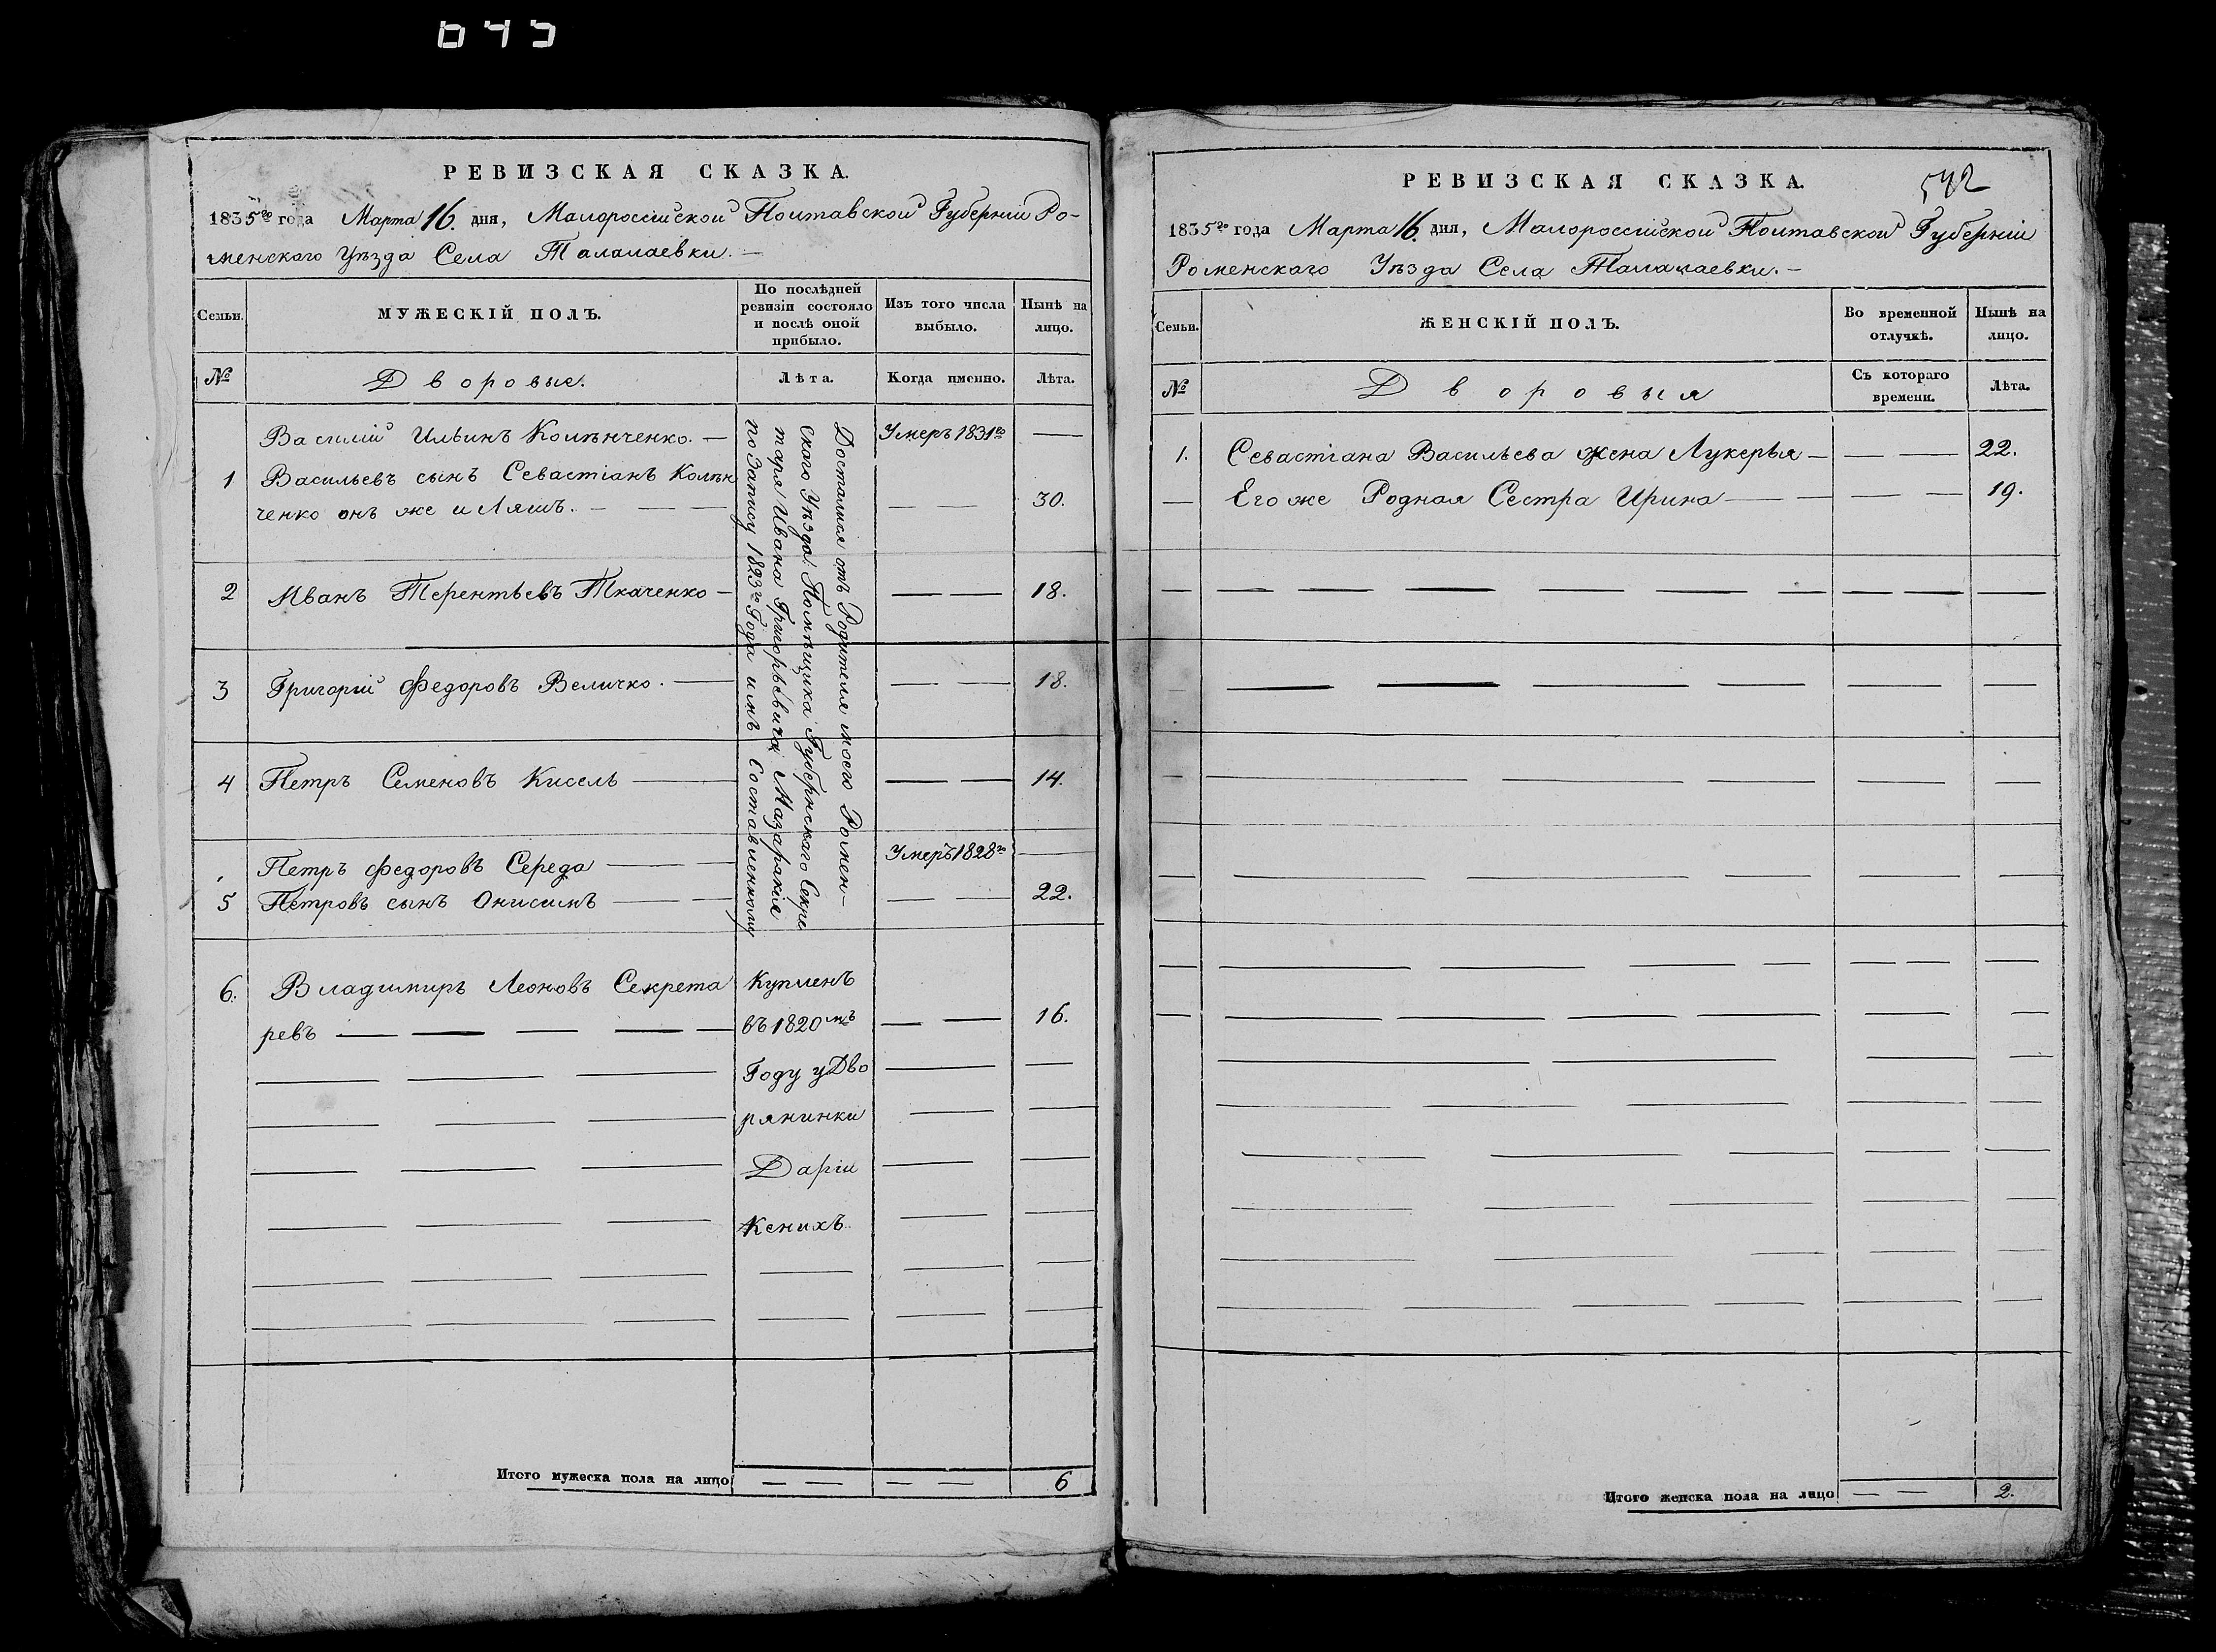 645
РЕВИЗСКАЯ СКАЗКА.
1835го года Марта 16. дня, Малороссійской Полтавской Губерніи Ро-
менскаго Уѣзда Села Талалаевки.
Семьи.
МУЖЕСКІЙ ПОЛЪ.
По послѣдней
ревизіи состояло
и послѣ оной
прибыло.
Изъ того числа
выбыло.
Нынѣ на
лицо.
№
Дворовые.
Лѣта.
Когда именно.
Лѣта.
Василій Ильинъ Колѣнченко. Умеръ 1831го
1 Васильевъ сынъ Севастіанъ Колѣн
ченко онъ же и Ляшъ. 30.
2 Иванъ Терентьевъ Ткаченко 18.
3 Григорій Федоровъ Величко. 18.
4 Петръ Семеновъ Кисель 14.
Петръ Федоровъ Середа Умеръ 1828го
5 Петровъ сынъ Онисимъ 22.
Достались отъ Родителя моего Ромен-
скаго Уѣзда Помѣщика Губернскаго Секре
таря Ивана Григорьевича Мазаракія
по Записи 1823го Года имъ Составленному
6. Владимиръ Леоновъ Секрета Купленъ
ревъ въ 1820мъ 16.
Году у Дво
рянинки
Даріи
Кенихъ.
Итого мужеска пола на лицо 6
РЕВИЗСКАЯ СКАЗКА.
542
1835го года Марта 16. дня, Малороссійской Полтавской Губерніи
Роменскаго Уѣзда Села Талалаевки.
Семьи.
ЖЕНСКІЙ ПОЛЪ.
Во временной
отлучкѣ.
Нынѣ на
лицо.
№
Дворовыя
Съ котораго
времени.
Лѣта.
1. Севастіана Васильева жена Лукерья 22.
Его же Родная Сестра Ирина 19.
Итого женска пола на лицо 2.